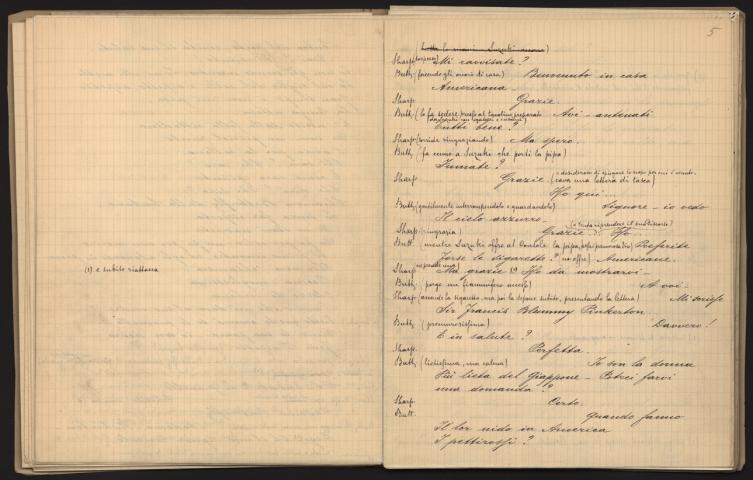 (1) e subito riattacca
5
(batte le mani - Suzuki accorre)
Sharp. (sorpreso) Mi ravvisate?
Butt. (facendo gli onori di casa) Benvenuto in casa
Americana -
Sharp. Grazie.
Butt. (lo fa sedere presso al tavolino preparato Avi - antenati
Tutti bene?
Sharp. (sorride ringraziando) Ma spero.
Butt. (fa cenno a Suzuki che porti la pipa)
Fumate?
Sharp. Grazie. (e desideroso di spiegare lo scopo per cui è venuto
cava una lettera di tasca)
Ho qui...
Butt. (gentilmente interrompendolo e guardandolo) Signore - io vedo
Il cielo azzurro -
(e tenta riprendere il suo discorso)
Sharp. (ringrazia) Grazie... Ho...
Butt. (mentre Suzuki offre al Console la pipa, Preferite
Forse le sigarette? (ne offre) Americane.
Sharp. Ma grazie (1) Ho da mostrarvi -
Butt. (porge un fiammifero acceso) A voi -
Sharp. (accende la sigaretta, ma poi la depone subito, presentando la lettera) Mi scrisse
Sir Francis Blummy Pinkerton...
Butt. (premurosissima) Davvero!
È in salute?
Sharp. Perfetta.
Butt. (lietissima, ma calma) Io son la donna
Più lieta del Giappone - Potrei farvi
una domanda?
Sharp. Certo.
Butt. Quando fanno
Il lor nido in America
I pettirossi?